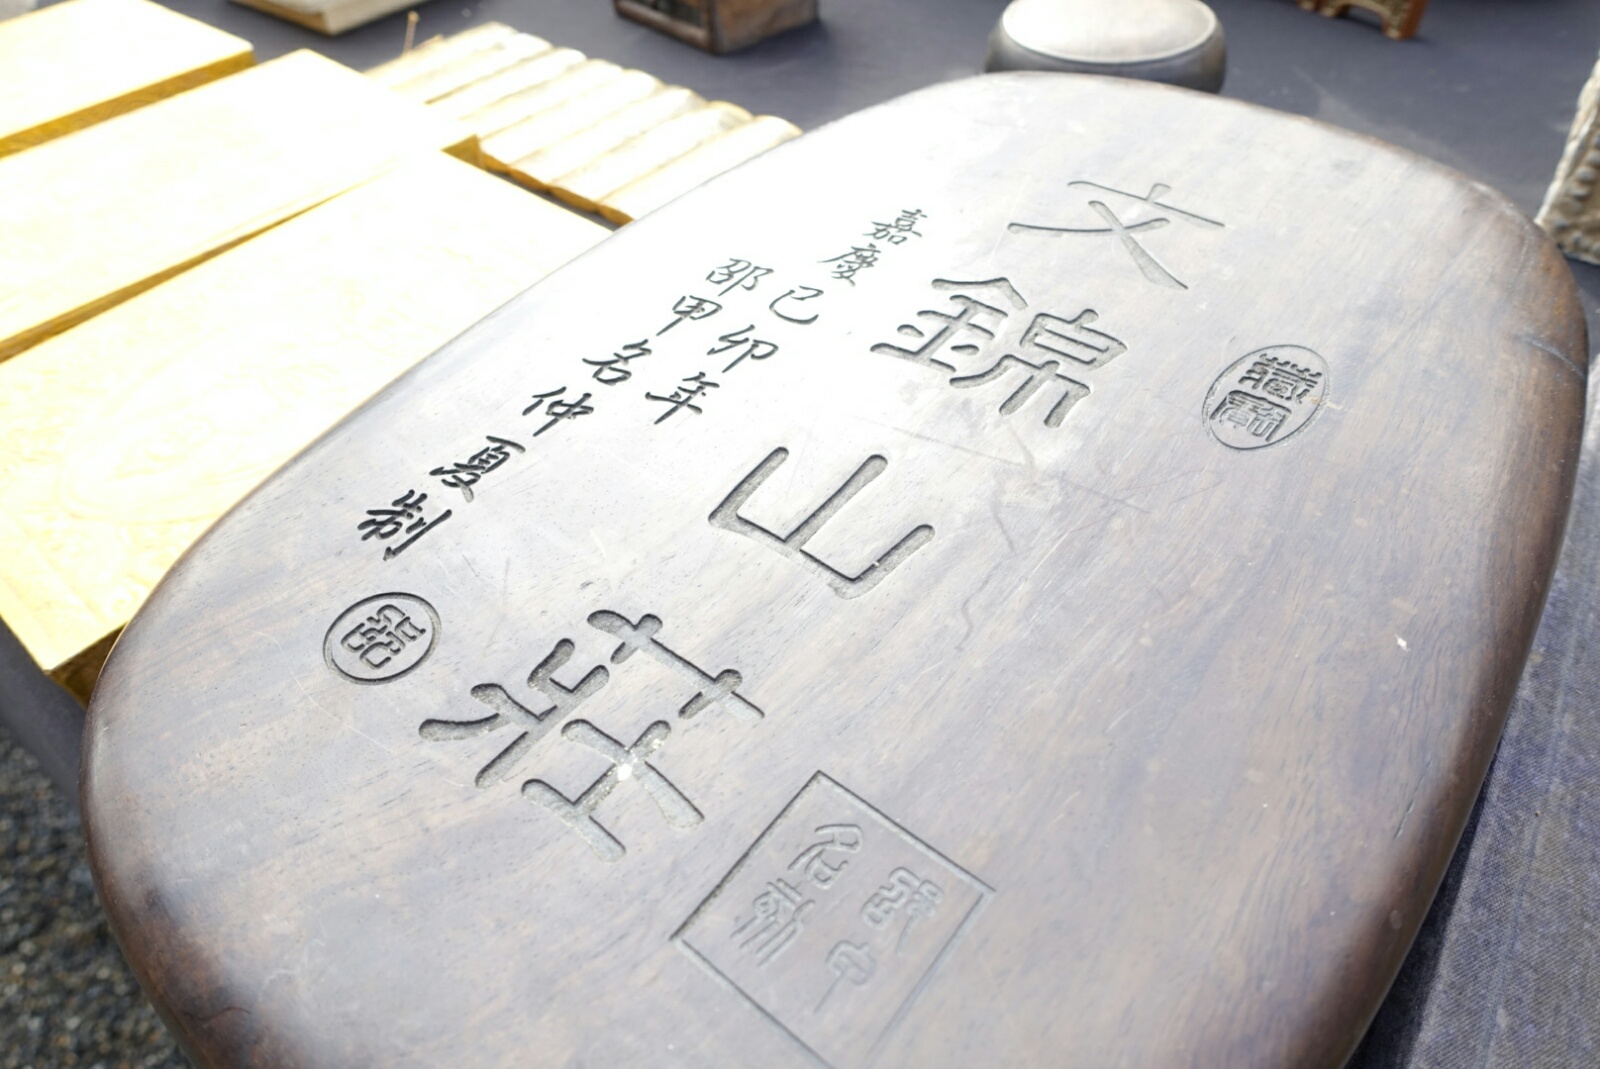 文錦山莊
嘉慶己卯年
邵甲名仲夏制